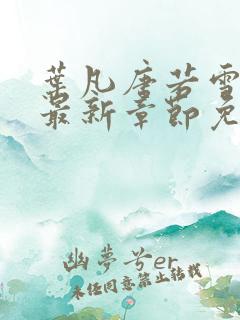 叶凡唐若雪
最新章節免
幽夢兮er
未经同意禁止转载